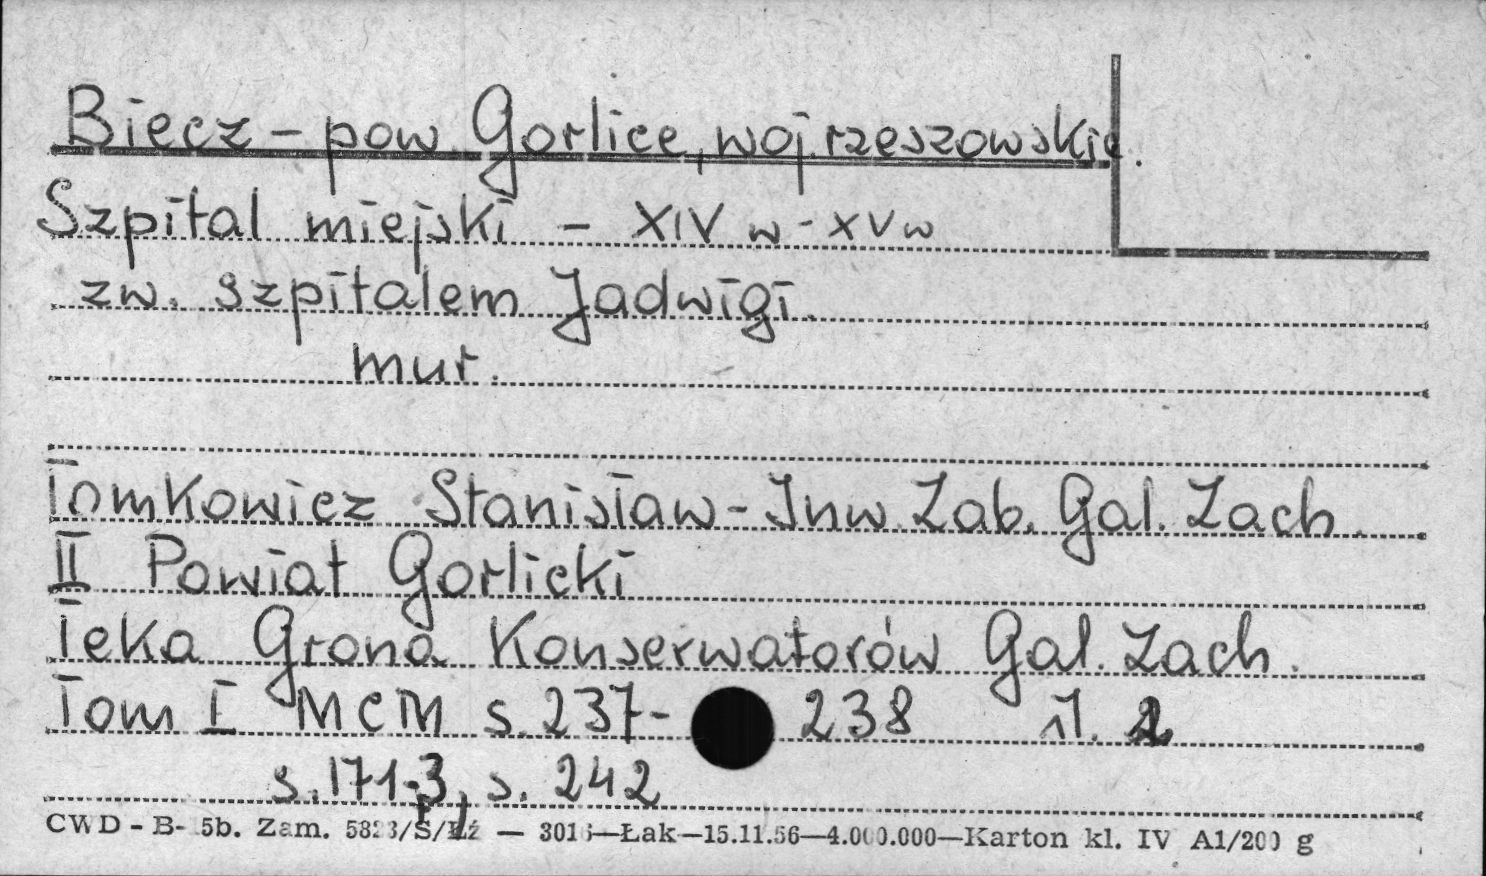 Biecz - pow. Gorlice, woj. rzeszowskie.
Szpital miejski - XIV w - XV w
zw. szpitalem Jadwigi.
mur.
Tomkowicz Stanisław - Inw. Zab. Gal. Zach.
II Powiat Gorlicki
Teka Grona Konserwatorów Gal. Zach.
Tom I MCM s. 237- 238 il. 2
s. 171-3, s. 242
CWD - B- 5b. Zam. /Ś/Łź — —Łak—15.11.56—4.000.000—Karton kl. IV A1/200 g